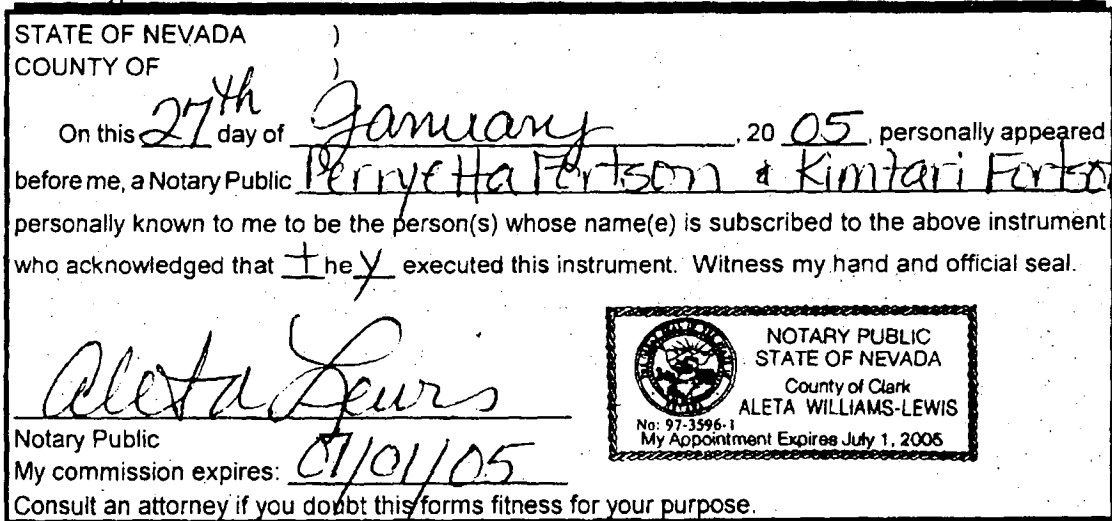 STATE OF NEVADA )
COUNTY OF )
On this 27th day of January, 20 05, personally appeared
before me, a Notary Public Perryetta Fertson & Kimtari Fertso
personally known to me to be the person(s) whose name(e) is subscribed to the above instrument
who acknowledged that they executed this instrument. Witness my hand and official seal.
Aleta Lewis
Notary Public
My commission expires: 07/01/05
Consult an attorney if you doubt this forms fitness for your purpose.
NOTARY PUBLIC
STATE OF NEVADA
County of Clark
ALETA WILLIAMS-LEWIS
No: 97-3596-1
My Appointment Expires July 1, 2005